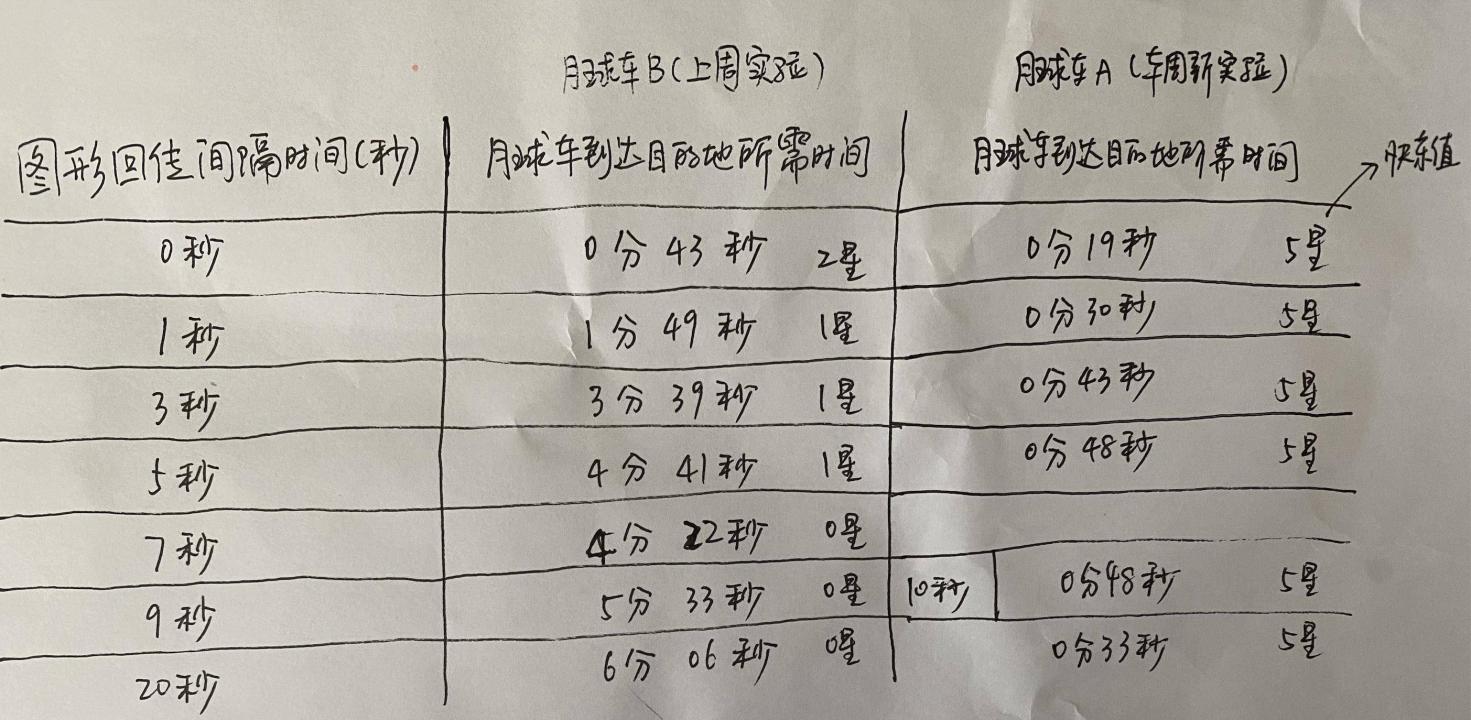 月球车B（上周实验）
月球车A（本周新实验）
图形回传间隔时间（秒）
月球车到达目的地所需时间
月球车到达目的地所需时间
快乐值
0秒 0分43秒 2星 0分19秒 5星
1秒 1分49秒 1星 0分30秒 5星
3秒 3分39秒 1星 0分43秒 5星
5秒 4分41秒 1星 0分48秒 5星
7秒 4分22秒 0星
9秒 5分33秒 0星 10秒 0分48秒 5星
20秒 6分06秒 0星 0分33秒 5星